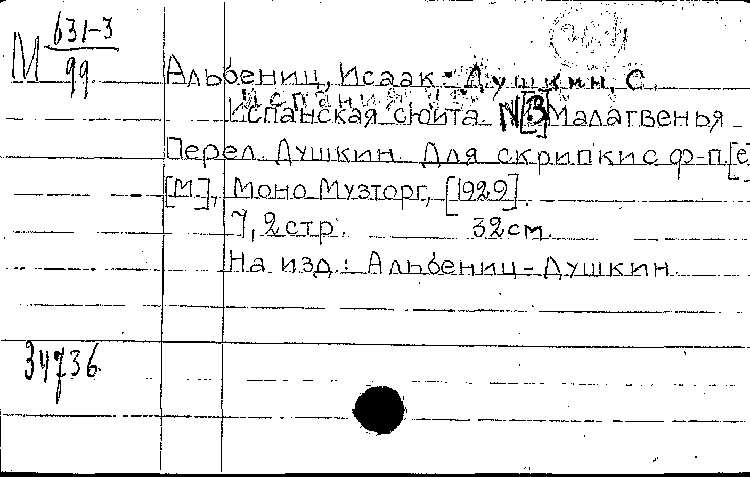 М 631-3
99
Альбениц, Исаак - Душкин, С.
Испанская сюита. N[3] Малагвенья
Перел. Душкин. Для скрипки с ф-п. [е]
[М.], Моно Музторг, [1929].
7, 2 стр. 32 см.
На изд.: Альбениц-Душкин.
34736